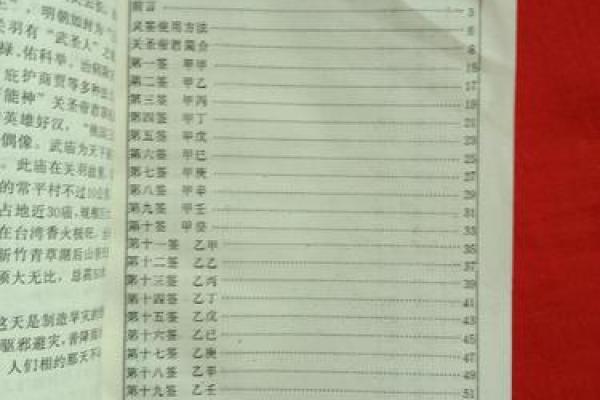 ，明朝始封为“
关羽有“武圣人”之
禄，佑科举，治病除
庇护商贾等多种
能神”关圣帝君
英雄好汉，“桃园三
偶像。武庙为天下
。此庙在关羽故里
的常平村不过10公
占地近30亩，规模
在台湾香火极旺，
新竹青草湖后山
须大无比，总高
这天是制造旱灾的
驱邪避灾，普降
人们相约那天不
前言 3
灵签使用方法 6
关圣帝君简介 8
第一签 甲甲 15
第二签 甲乙 17
第三签 甲丙 19
第四签 甲丁 21
第五签 甲戊 23
第六签 甲已 25
第七签 甲庚 27
第八签 甲辛 29
第九签 甲壬 31
第十签 甲癸 33
第十一签 乙甲 35
第十二签 乙乙 37
第十三签 乙丙 39
第十四签 乙丁 41
第十五签 乙戊 43
第十六签 乙已 45
第十七签 乙庚 47
第十八签 乙甲 49
第十九签 乙壬 51